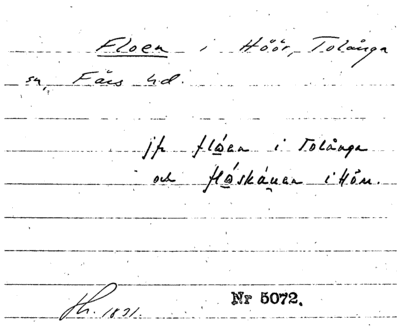 Floen i Höör, Tolånga
sn, Färs hd.
jfr flöen i Tolånga
och flöskánen i Hörr.
1831.
Nr 5072.